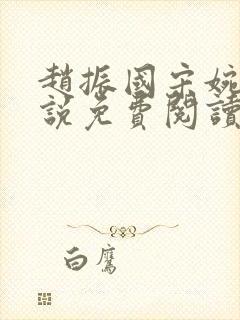 趙振國宋婉
說免費閱讀
白鷹